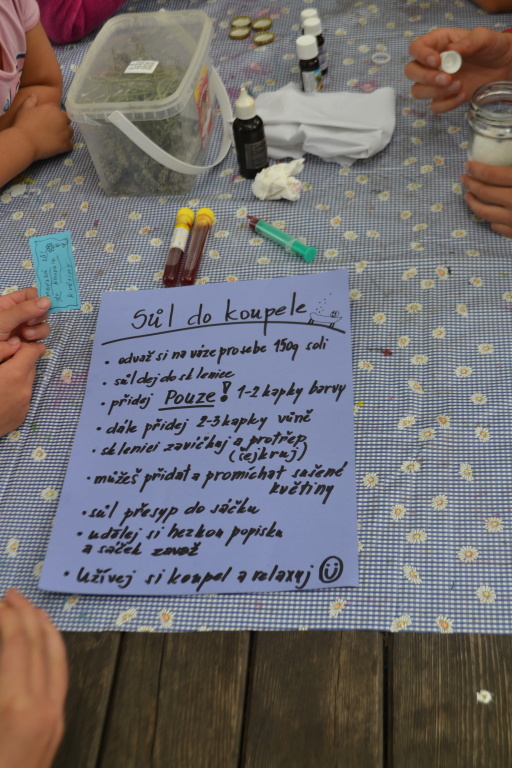 Sůl do koupele
• odvaž si na váze pro sebe 150g soli
• sůl dej do sklenice
• přidej Pouze! 1-2 kapky barvy
• dále přidej 2-3 kapky vůně
• sklenici zavíčkuj a protřep
(šejkruj)
• můžeš přidat a promíchat sušené
květiny
• sůl přesyp do sáčku
• udělej si hezkou popisku
a sáček zavaž
• Užívej si koupel a relaxuj